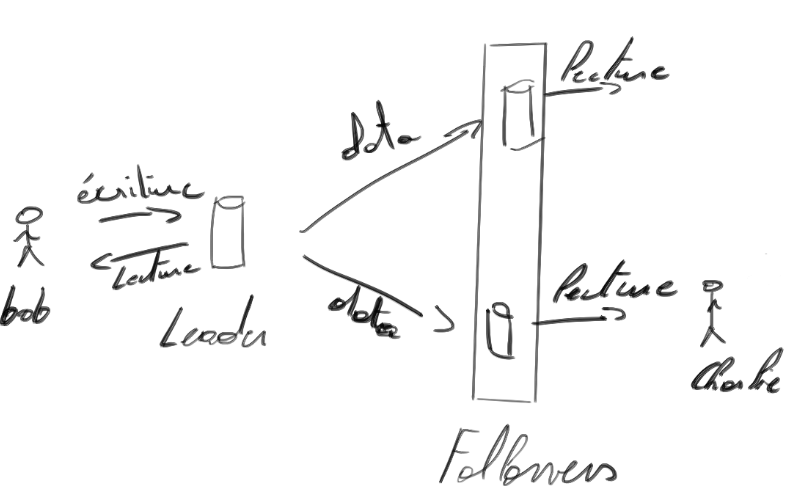 écriture
lecture
bob
Leader
data
data
lecture
lecture
Charlie
Followers